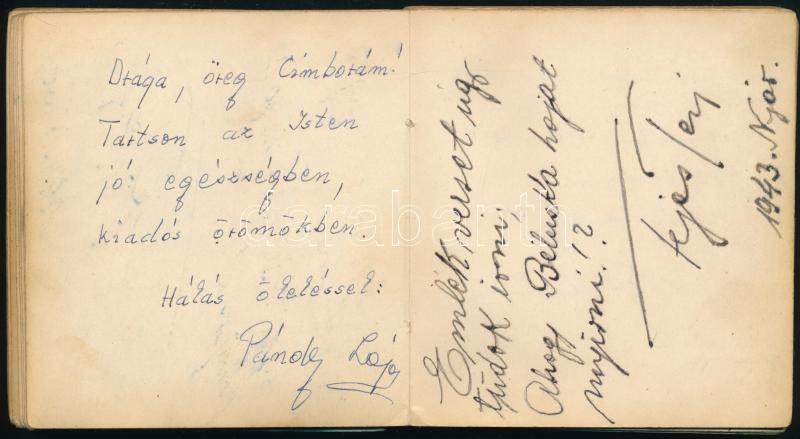 Drága, öreg Cimborám!
Tartson az Isten
jó egészségben,
kiadós örömökben.
Hálás öleléssel:
Pándy Lajos
Emlékverset úgy
tudok írni
Ahogy Beluska haját
nyirni!?
Fejes Teri
1943. Nyár.
darabanth